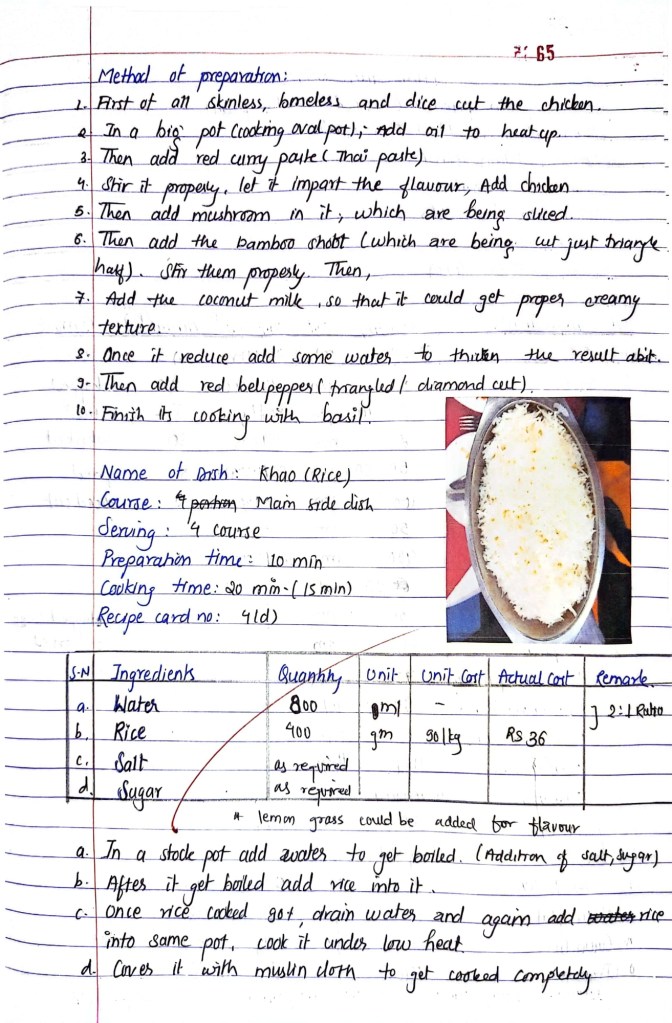 7: 65
Method of preparation:
1. First of all skinless, boneless and dice cut the chicken.
2. In a big pot (cooking oval pot), Add oil to heat up.
3. Then add red curry paste (Thai paste)
4. Stir it properly, let it impart the flavour, Add chicken
5. Then add mushroom in it, which are being sliced.
6. Then add the bamboo shoot (which are being cut just triangle
half). Stir them properly. Then,
7. Add the coconut milk, so that it could get proper creamy
texture.
8. Once it reduce add some water to thicken the result abit.
9. Then add red bellpepper (triangled / diamond cut).
10. Finish its cooking with basil.
Name of Dish: Khao (Rice)
Course: 4 portion Main side dish
Serving: 4 course
Preparation time: 10 min
Cooking time: 20 min-(15min)
Recipe card no: 4(d)
S.N Ingredients Quantity Unit Unit Cost Actual Cost Remark
a. Water 800 ml - ] 2:1 Ratio
b. Rice 400 gm 90/kg RS 36
c. Salt as required
d. Sugar as required
* lemon grass could be added for flavour
a. In a stock pot add water to get boiled. (Addition of salt, sugar)
b. After it get boiled add rice into it.
c. Once rice cooked got, drain water and again add water rice
into same pot, cook it under low heat
d. Cover it with muslin cloth to get cooked completely